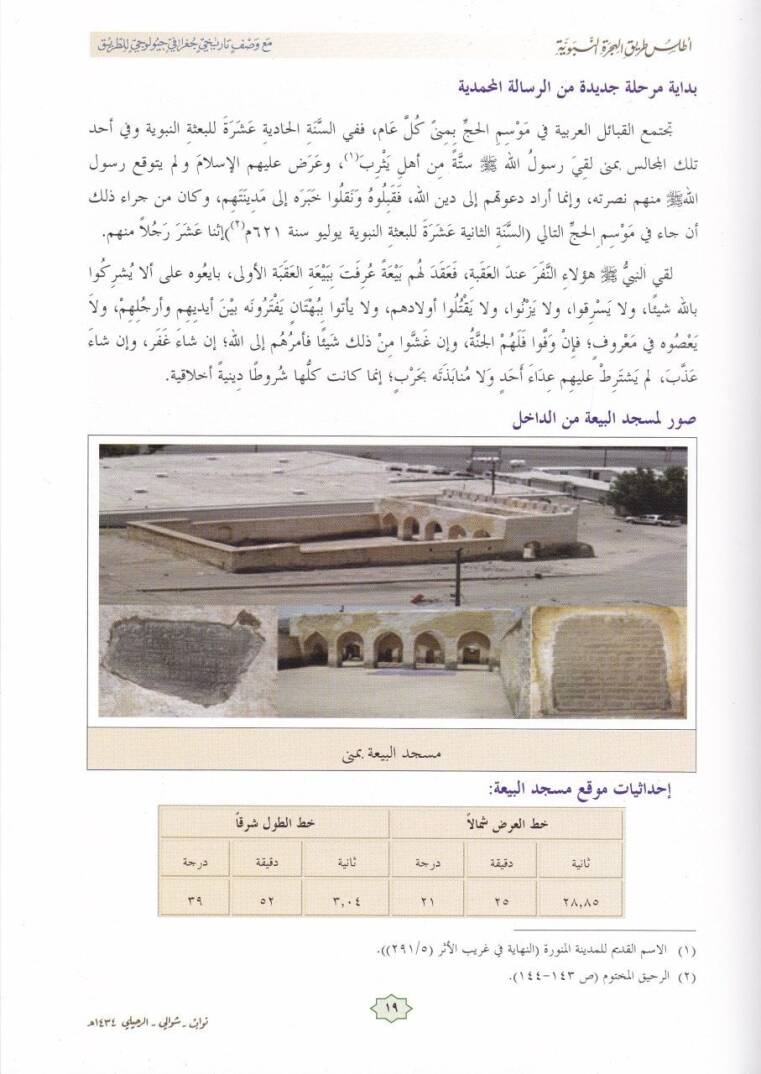 أطلس طريق الهجرة النبوية
مع وصف تاريخي جغرافي جيولوجي للطريق
بداية مرحلة جديدة من الرسالة المحمدية
تجتمع القبائل العربية في مَوْسِمِ الحجِّ بِمِنىً كُلَّ عَام، ففي السَّنَةِ الحادية عَشَرَةَ للبعثةِ النبوية وفي أحد
تلك المجالس بمنى لقِيَ رسولُ الله ﷺ ستَّةً مِن أهلِ يَثْرِبَ(١)، وعَرَض عليهم الإسلامَ ولم يتوقع رسول
اللهﷺ منهم نصرته، وإنما أراد دعوتَهم إلى دين الله، فَقَبِلُوهُ وَنَقلُوا خَبَرَه إلى مَدِينَتَهِم، وكان من جراء ذلك
أن جاء في مَوْسِمِ الحجِّ التالي (السَّنَةِ الثانية عَشَرَةَ للبعثة النبوية يوليو سنة ٦٢١م(٢))إثنا عَشَرَ رَجُلاً منهم.
لقي النبيُّ ﷺ هؤلاءِ النَّفَرَ عندَ العَقَبةِ، فَعَقَدَ لهُم بَيْعَةً عُرفَتْ بِبَيْعَةِ العَقَبَة الأولى، بايعُوه على ألا يُشرِكُوا
بالله شيئًا، ولا يَسْرِقوا، ولا يَزْنُوا، ولا يَقْتُلُوا أولادهم، ولا يأتوا بِبُهْتَانٍ يَفْتَرُونَه بيْنَ أيديهِم وأرجُلِهِمْ، ولاَ
يَعْصُوه في مَعْروفٍ؛ فإنْ وَفَّوا فَلَهُمْ الجنَّةُ، وإن غَشَّوا مِنْ ذلك شَيئًا فأمرُهُم إلى الله؛ إن شاءَ غَفَر، وإن شاءَ
عَذَّبَ، لم يَشترِطْ عليهم عِدَاءَ أَحَدٍ وَلا مُنابَذَتَه بحَرْبٍ؛ إنما كانت كلُّها شُروطًا دِينيةً أخلاقية.
صور لمسجد البيعة من الداخل
مسجد البيعة بمنى
إحداثيات موقع مسجد البيعة:
خط العرض شمالاً خط الطول شرقاً
ثانية دقيقة درجة ثانية دقيقة درجة
٢٨,٨٥ ٢٥ ٢١ ٣,٠٤ ٥٢ ٣٩
(١) الاسم القديم للمدينة المنورة (النهاية في غريب الأثر (٢٩١/٥)).
(٢) الرحيق المختوم (ص ١٤٣-١٤٤).
١٩
نواب - شوالي - الرحيلي ١٤٣٤هـ